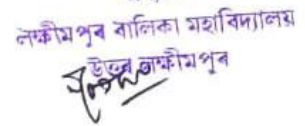 লক্ষীমপুৰ বালিকা মহাবিদ্যালয়
উত্তৰ লক্ষীমপুৰ